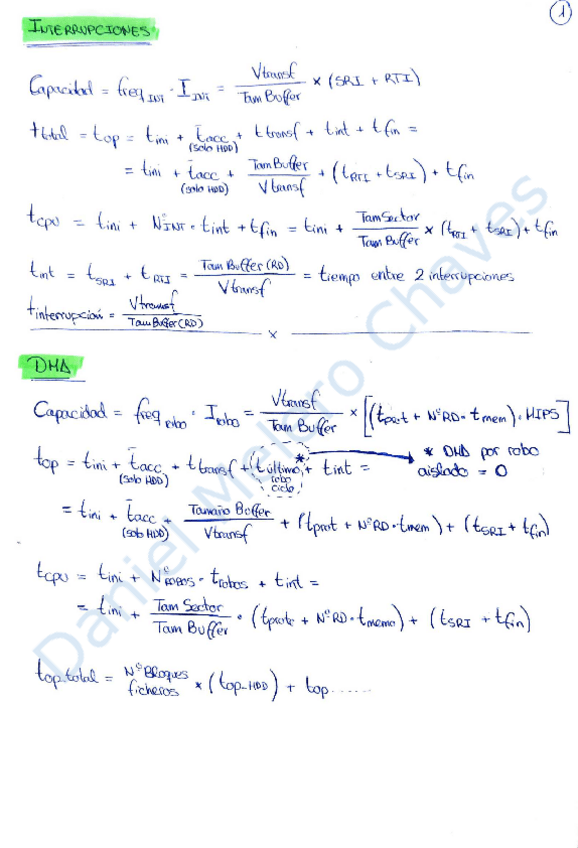 1
INTERRUPCIONES
Capacidad = freq INT · I INT = Vtransf / Tam Buffer × (SRI + RTI)
t total = t op = t ini + t acc (solo HDD) + t transf + t int + t fin =
= t ini + t acc (solo HDD) + Tam Buffer / Vtransf + (t RTI + t SRI) + t fin
t CPU = t ini + Nº INT · t int + t fin = t ini + Tam Sector / Tam Buffer × (t RTI + t SRI) + t fin
t int = t SRI + t RTI = Tam Buffer (RD) / Vtransf = tiempo entre 2 interrupciones
t interrupción = Vtransf / Tam Buffer (RD)
x
DMA
Capacidad = freq robo · I robo = Vtransf / Tam Buffer × [(t prot + Nº RD · t mem) · MIPS]
t op = t ini + t acc (solo HDD) + t transf + (t último robo ciclo)* + t int =
* DMA por robo
aislado = 0
= t ini + t acc (solo HDD) + Tamaño Buffer / Vtransf + (t prot + Nº RD · t mem) + (t SRI + t fin)
t CPU = t ini + Nº ROBOS · t robos + t int =
= t ini + Tam Sector / Tam Buffer · (t proto + Nº RD · t memo) + (t SRI + t fin)
t op total = Nº Bloques ficheros × (t op-HDD) + t op ......
Daniel Melaro Chaves